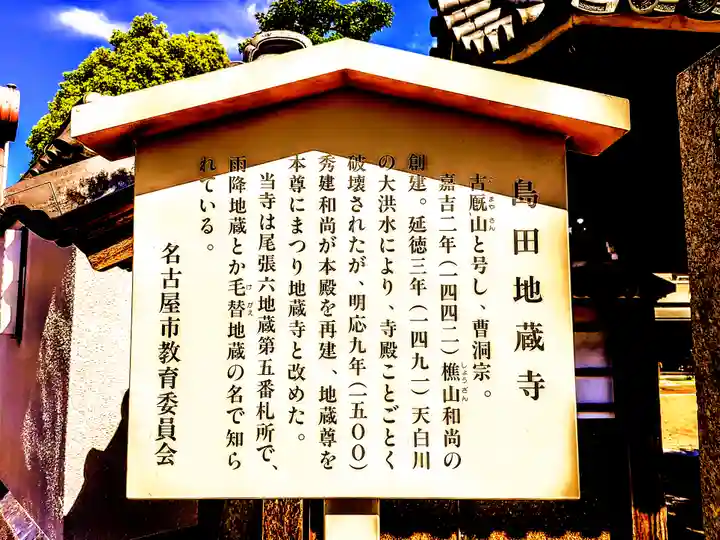 島田地蔵寺
古厩山と号し、曹洞宗。
こまやさん
嘉吉二年(一四四二)樵山和尚の
しょうざん
創建。延徳三年(一四九一)天白川
の大洪水により、寺殿ことごとく
破壊されたが、明応九年(一五〇〇)
秀建和尚が本殿を再建、地蔵尊を
本尊にまつり地蔵寺と改めた。
当寺は尾張六地蔵第五番札所で、
雨降地蔵とか毛替地蔵の名で知ら
けがえ
れている。
名古屋市教育委員会